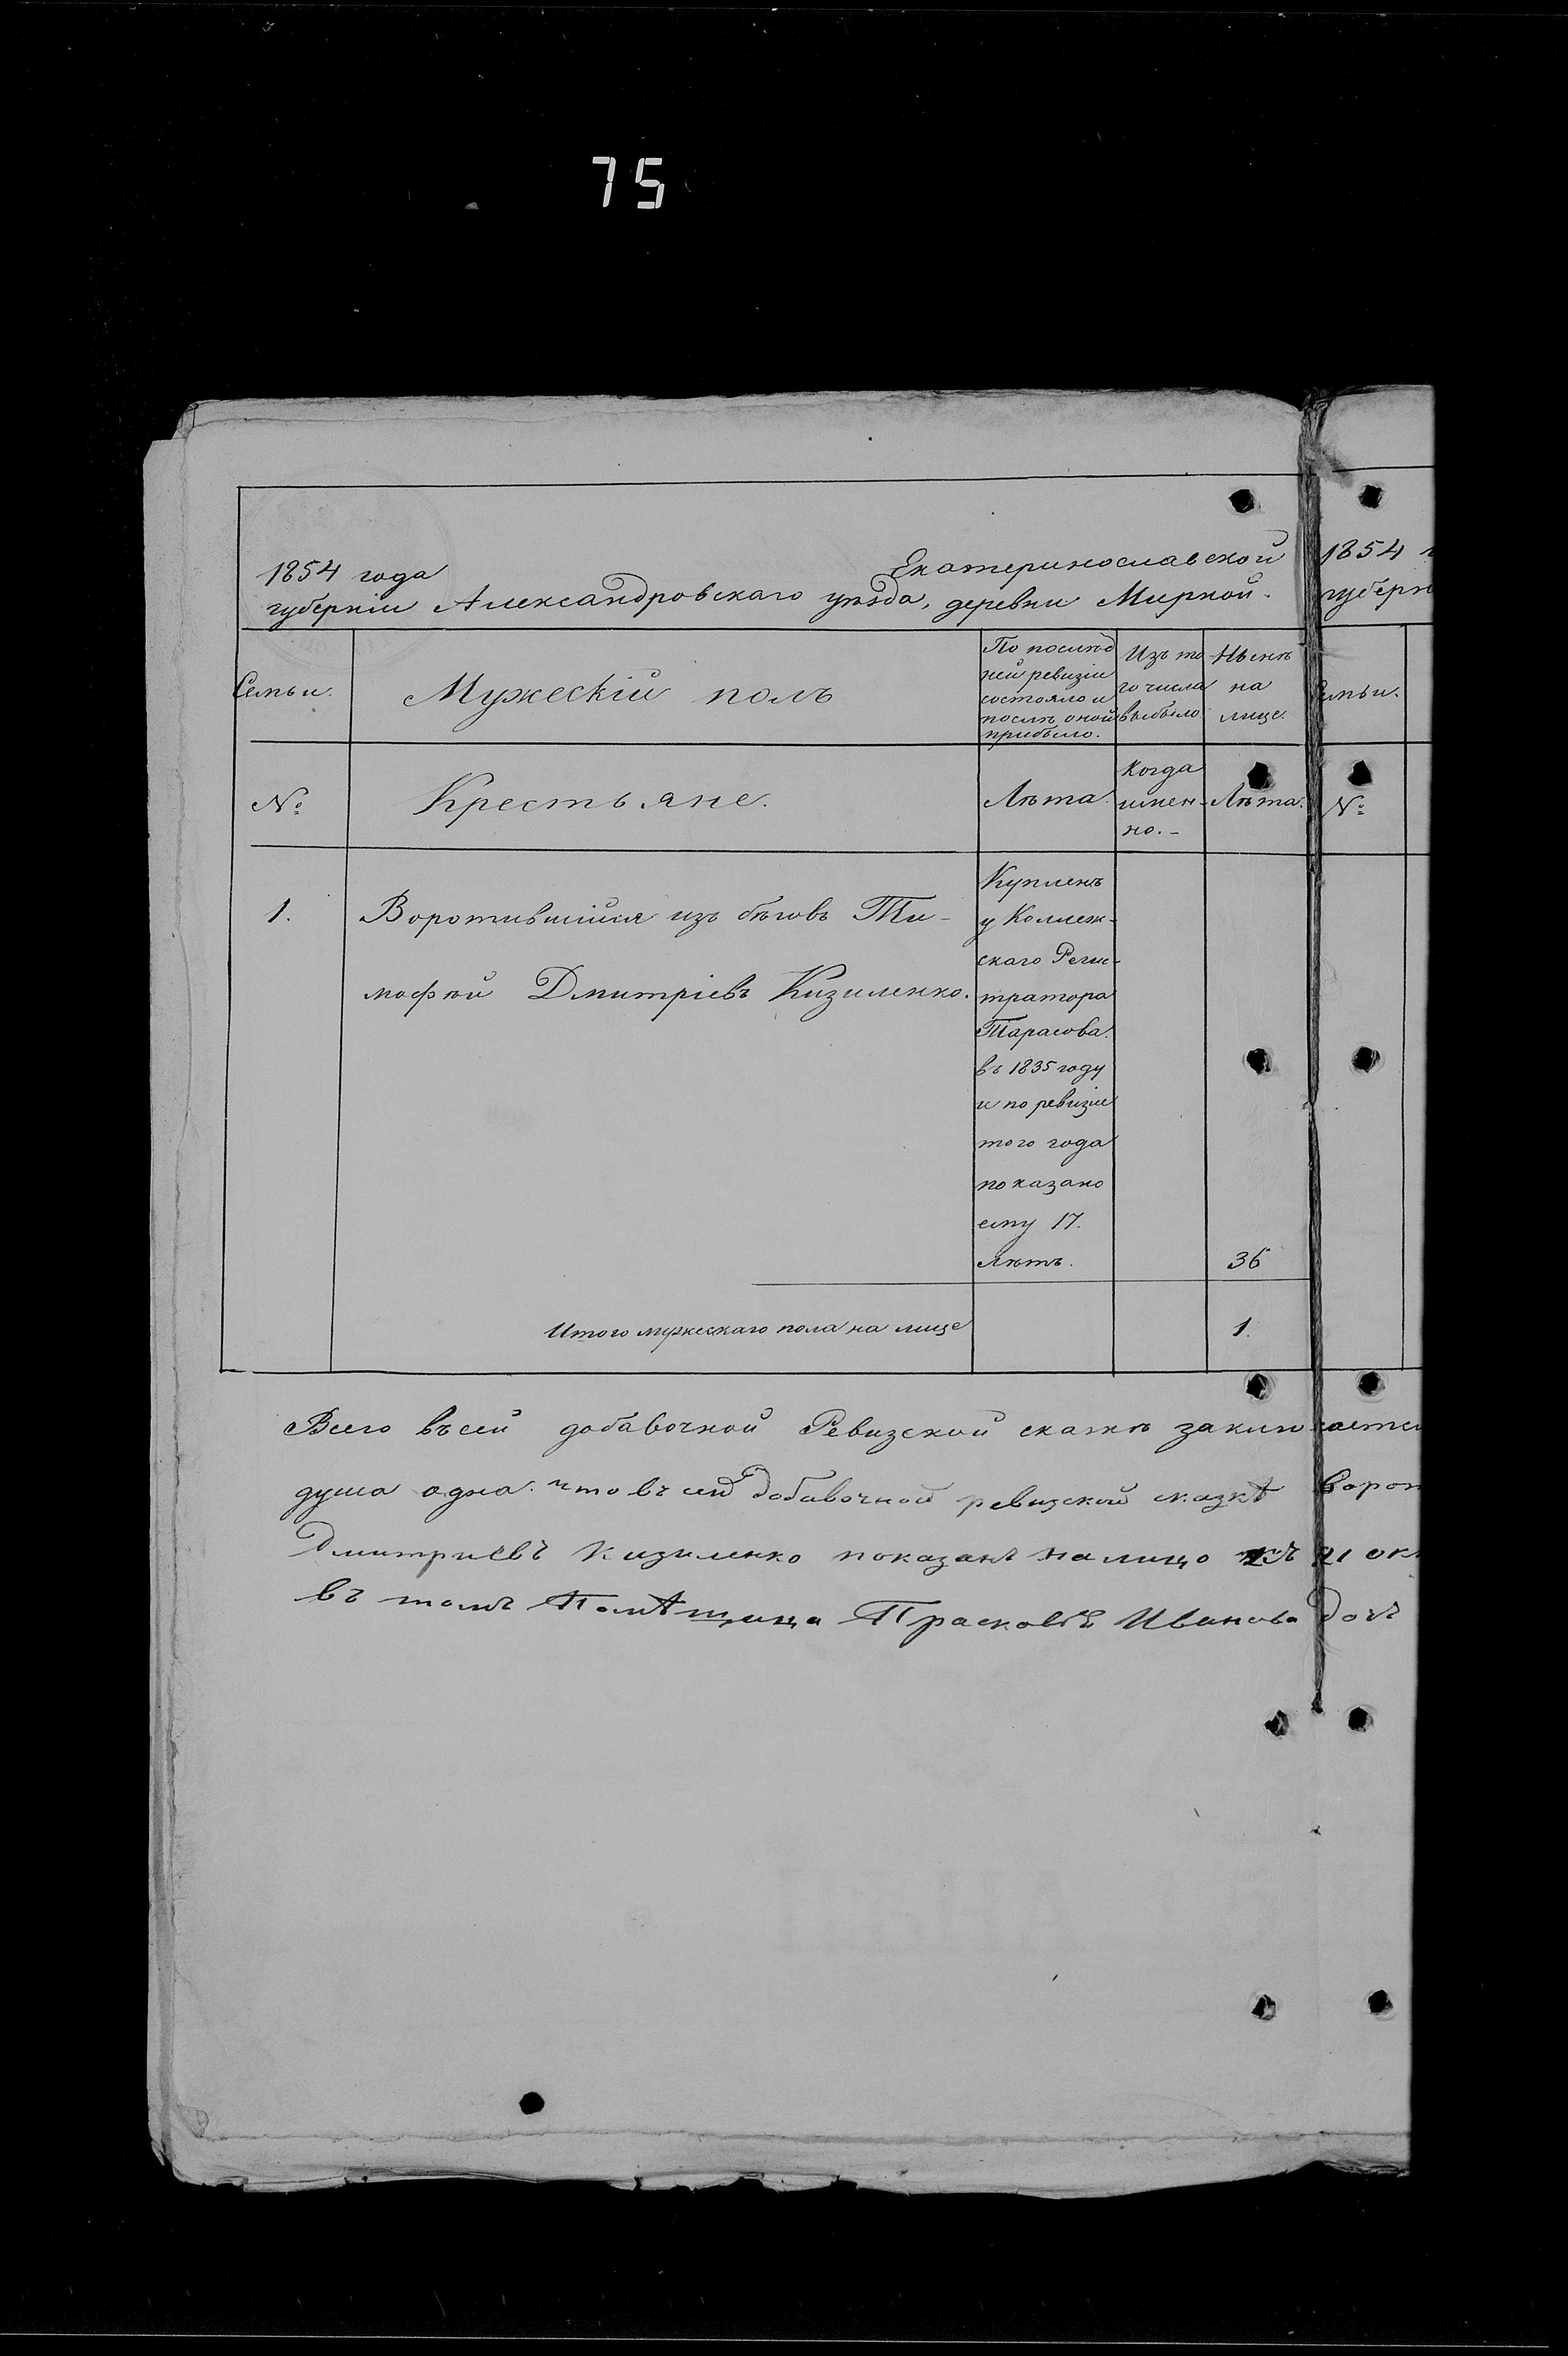 75
1854 года Екатеринославской
губерніи Александровскаго уѣзда, деревни Мирной.
1854
губерн
Семьи.
Мужескій полъ
По послѣд
ней ревизіи
состояло и
послѣ оной
прибыло.
Изъ то
го числа
выбыло
Нынѣ
на
лице.
Семьи.
№
Крестьяне.
Лѣта.
Когда
имен-
но.-
Лѣта.
№
1.
Воротившійся изъ бѣговъ Ти-
мофѣй Дмитріевъ Кизиленко.
Купленъ
у Коллеж-
скаго Регис-
тратора
Тарасова.
въ 1835 году
и по ревизіи
того года
показано
ему 17.
лѣтъ.
36
Итого мужескаго пола на лице
1.
Всего въ сей добавочной Ревизской сказкѣ заключается
душа одна. что въ сей добавочной ревизской сказкѣ ворот
Дмитриевъ Кизиленко показанъ налицо 21 ок
въ томъ Помѣщица Прасковья Иванова доч